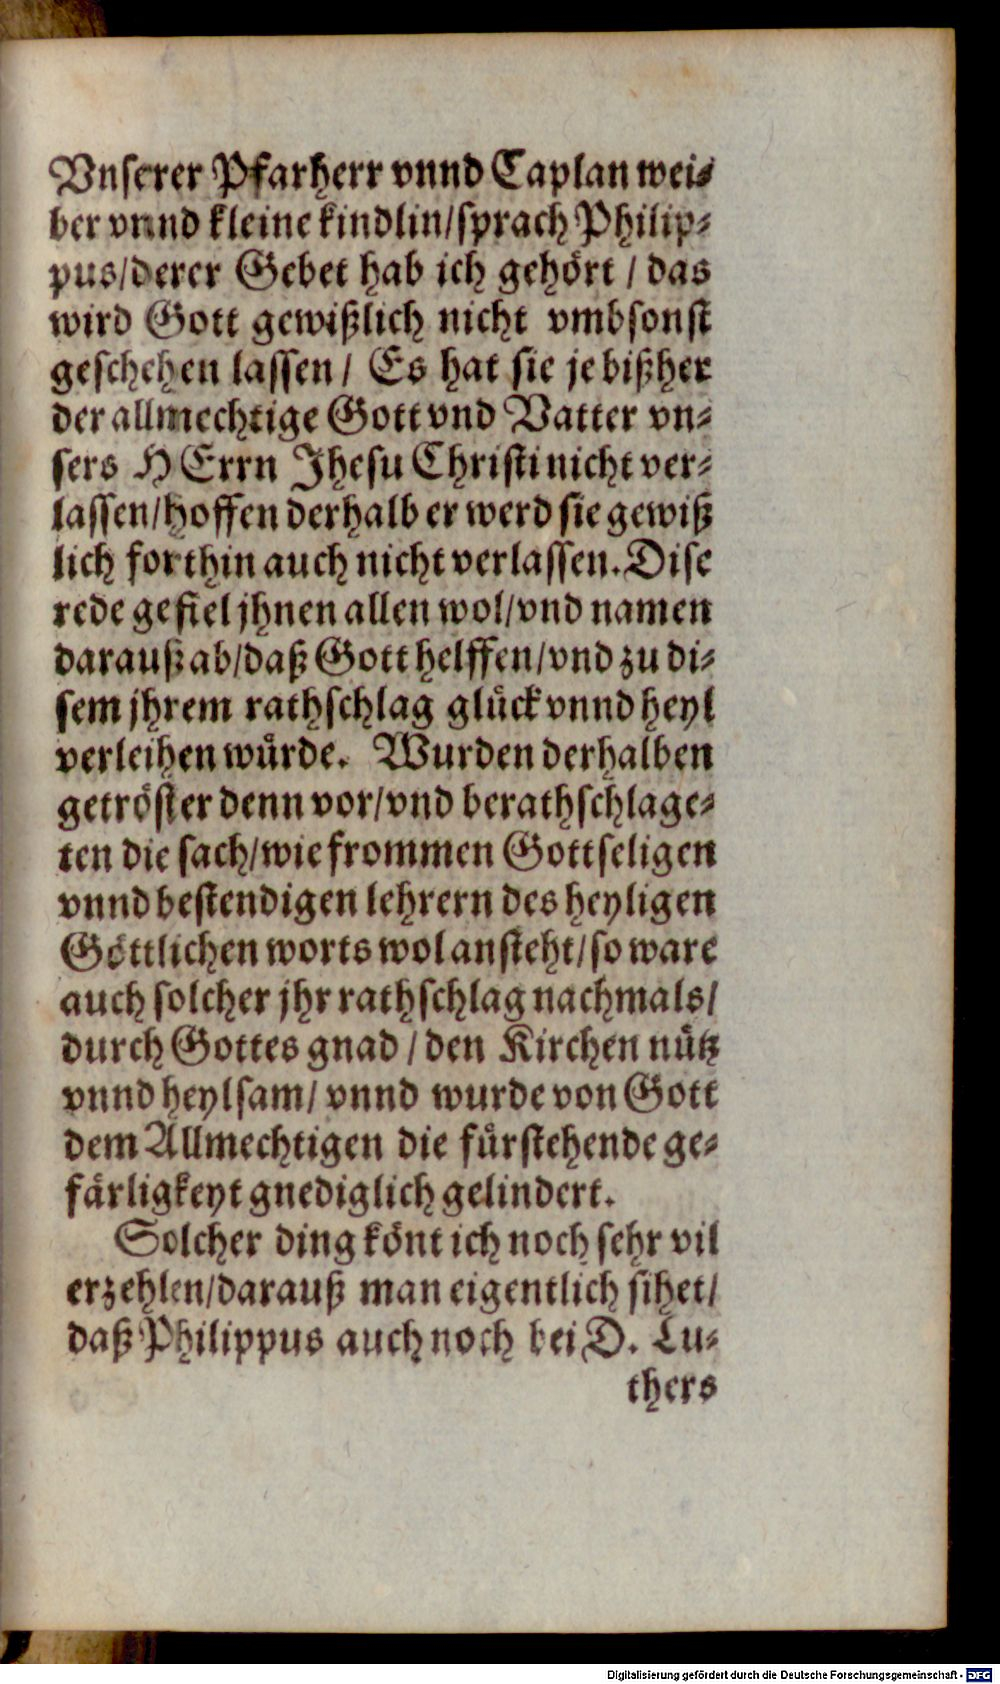 Vnserer Pfarherr vnnd Caplan wei⸗
ber vnnd kleine kindlin/sprach Philip⸗
pus/derer Gebet hab ich gehört / das
wird Gott gewißlich nicht vmbsonst
geschehen lassen / Es hat sie je bißher
der allmechtige Gott vnd Vatter vn⸗
sers HErrn Jhesu Christi nicht ver⸗
lassen/hoffen derhalb er werd sie gewiß
lich forthin auch nicht verlassen. Dise
rede gefiel jhnen allen wol/vnd namen
darauß ab/daß Gott helffen/vnd zu di⸗
sem jhrem rathschlag glück vnnd heyl
verleihen würde. Wurden derhalben
getröster denn vor/vnd berathschlage⸗
ten die sach/wie frommen Gottseligen
vnnd bestendigen lehrern des heyligen
Göttlichen worts wol ansteht/so ware
auch solcher jhr rathschlag nachmals/
durch Gottes gnad / den Kirchen nütz
vnnd heylsam/ vnnd wurde von Gott
dem Allmechtigen die fürstehende ge⸗
färligkeyt gnediglich gelindert.
Solcher ding könt ich noch sehr vil
erzehlen/darauß man eigentlich sihet/
daß Philippus auch noch bei D. Lu⸗
thers
Digitalisierung gefördert durch die Deutsche Forschungsgemeinschaft - DFG